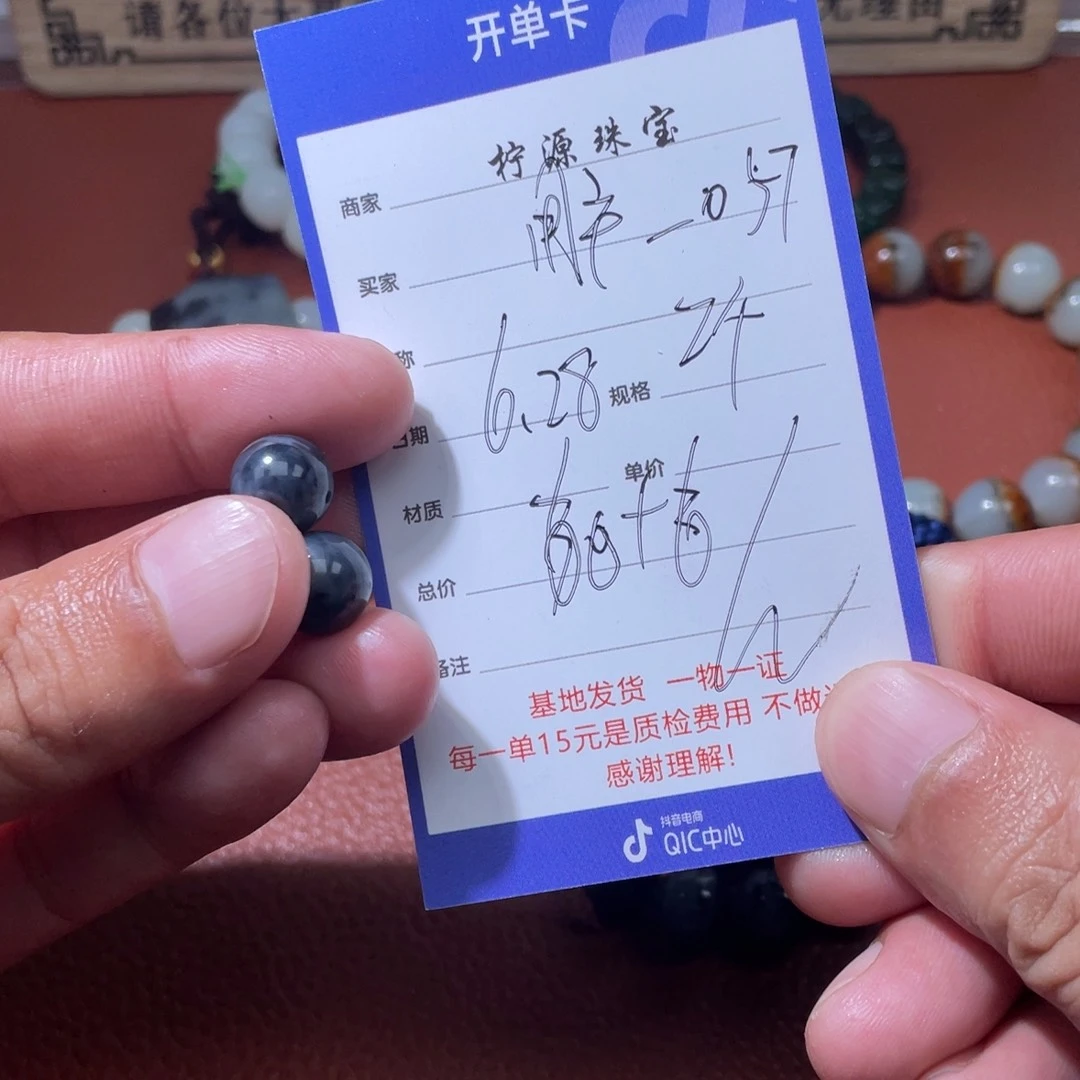 请各位
开单卡
柠源珠宝
商家
买家
用户 057
称
24
日期 6.28 规格
材质 单价
总价
备注
基地发货 一物一证
每一单15元是质检费用 不做
感谢理解!
抖音电商
QIC中心